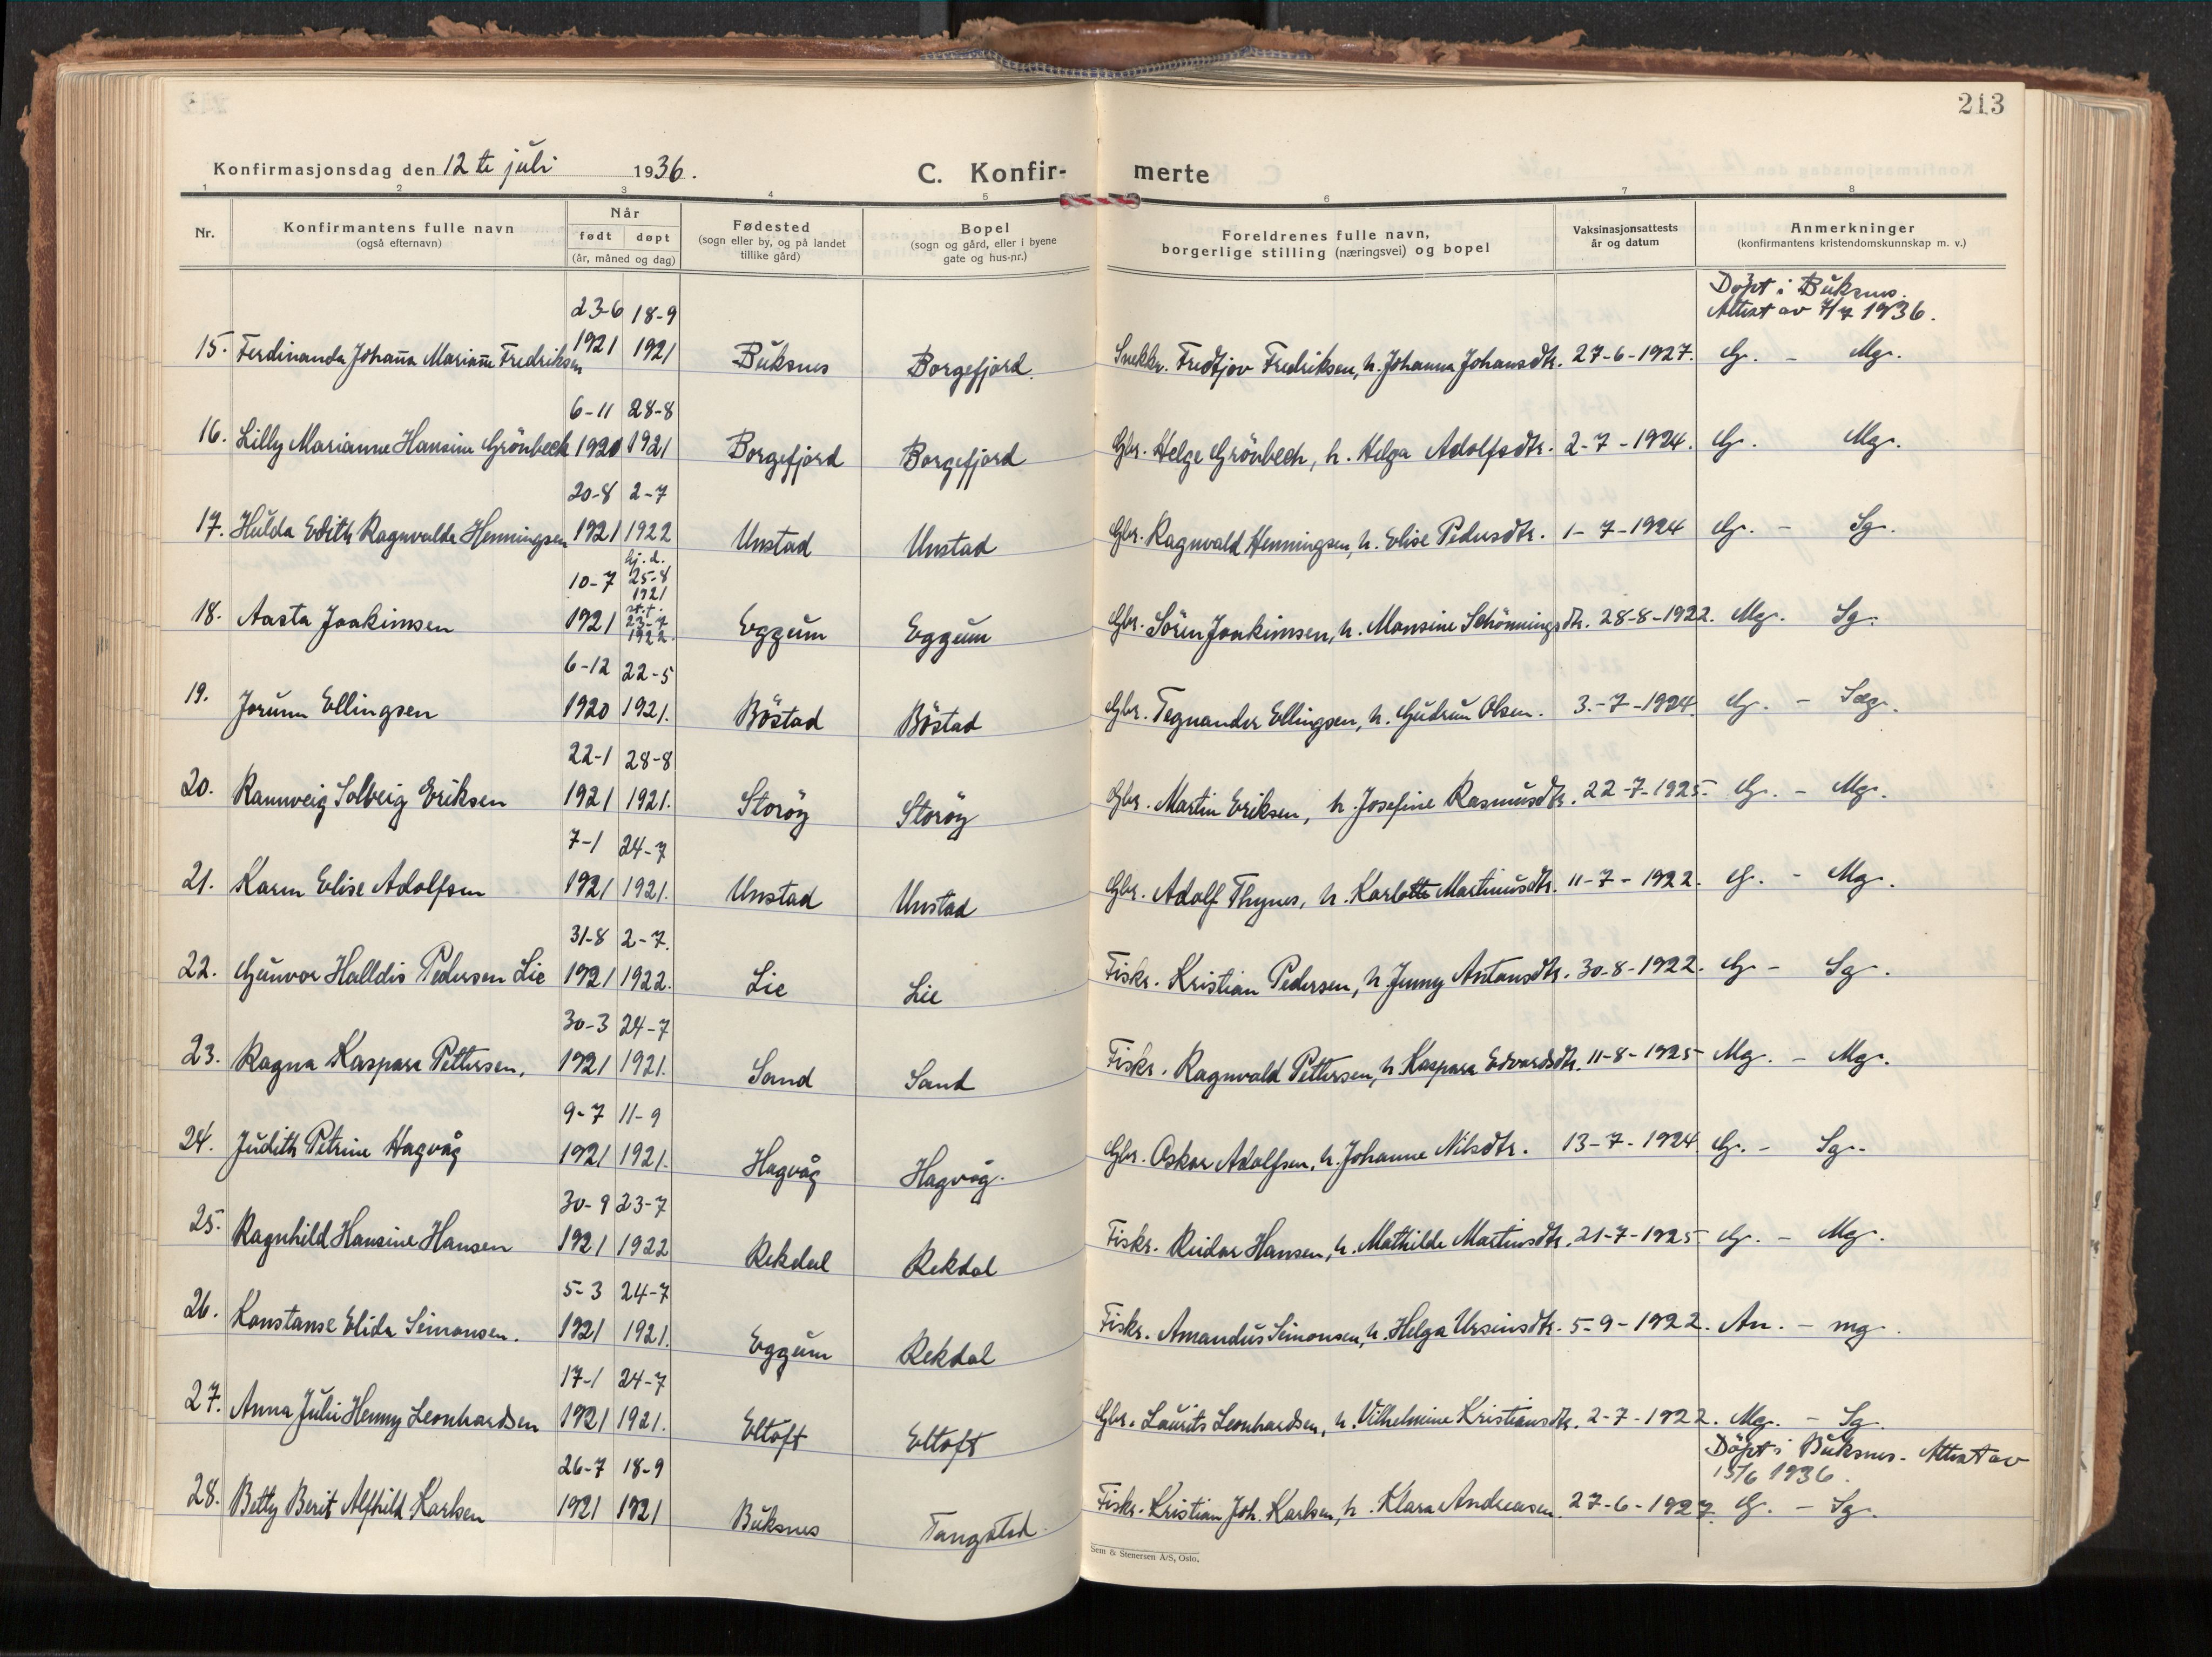 213
Konfirmasjonsdag den 12 te juli 1936.
C. Konfir- merte
1 2 3 4 5 6 7 8
Nr.
Konfirmantens fulle navn
(også efternavn)
Når
født døpt
(år, måned og dag)
Fødested
(sogn eller by, og på landet
tillike gård)
Bopel
(sogn og gård, eller i byene
gate og hus-nr.)
Foreldrenes fulle navn,
borgerlige stilling (næringsvei) og bopel
Vaksinasjonsattests
år og datum
Anmerkninger
(konfirmantens kristendomskunnskap m. v.)
Döpt i Buksnes.
23-6 18-9 Attest av 7/7 1936.
15. Ferdinanda Johanna Marianne Fredriksen 1921 1921 Buksnes Borgefjord. Snekkr. Fredtjov Fredriksen, h. Johanna Johansdtr. 27-6-1927. G. - Mg.
6-11 28-8
16. Lilly Marianne Hansine Grönbech 1920 1921 Borgefjord Borgefjord Gbr. Helge Grönbech, h. Helga Adolfsdtr. 2-7-1924. G. Mg.
20-8 2-7
17. Hulda Edith Ragnvalda Henningsen 1921 1922 Unstad Unstad Gbr. Ragnvald Henningsen, h. Elise Pedersdtr. 1-7-1924 G. - Sg.
Hj. d.
10-7 25-8
1921
18. Aasta Joakimsen 1921 st. f. 23-7 1922. Eggum Eggum Gbr. Sören Joakimsen, h. Monsine Schönningsdtr. 28-8-1922. Mg. Sg.
6-12 22-5
19. Jorunn Ellingsen 1920 1921. Böstad Böstad Gbr. Tegnander Ellingsen, h. Gudrun Olsen. 3-7-1924. G. - Sg.
22-1 28-8
20. Rannveig Solveig Eriksen 1921 1921. Storöy Storöy Gbr. Martin Eriksen, h. Josefine Rasmusdtr. 22-7-1925. G. - Mg.
7-1 24-7
21. Karen Elise Adolfsen 1921 1921. Unstad Unstad Gbr. Adolf Thynes, h. Karlotte Martinusdtr. 11-7-1922. G. - Mg.
31-8 2-7.
22. Gunvor Halldis Pedersen Lie 1921 1922. Lie Lie Fiskr. Kristian Pedersen, h. Jenny Antonsdtr. 30-8-1922. G - Sg.
30-3 24-7
23. Ragna Kaspara Pettersen. 1921 1921. Sand Sand Fiskr. Ragnvald Pettersen, h. Kaspara Edvardsdtr. 11-8-1925 Mg. - Mg.
9-7 11-9
24. Judith Petrine Hagvåg 1921 1921. Hagvåg Hagvåg. Gbr. Oskar Adolfsen, h. Johanne Nilsdtr. 13-7-1924. G. - Sg.
30-9 23-7
25. Ragnhild Hansine Hansen 1921 1922 Rekdal Rekdal Fiskr. Reidar Hansen, h. Mathilde Martinsdtr. 21-7-1925 G. - Mg.
5-3 24-7
26. Konstanse Elida Simonsen. 1921 1921. Eggum Rekdal Fiskr. Amandus Simonsen, h. Helga Ursinsdtr. 5-9-1922. An. - mg.
17-1 24-7
27. Anna Julie Henny Leonhardsen 1921 1921. Eltoft Eltoft Gbr. Laurits Leonhardsen, h. Vilhelmine Kristiansdtr. 2-7-1922. Mg. - Sg.
Döpt i Buksnes. Attest av
26-7 18-9 15/6 1936.
28. Betty Berit Alfhild Karlsen 1921 1921 Buksnes Tangstad Fiskr. Kristian Joh. Karlsen, h. Klara Andreasen. 27-6-1927. G. - Sg.
Sem & Stenersen A/S, Oslo.